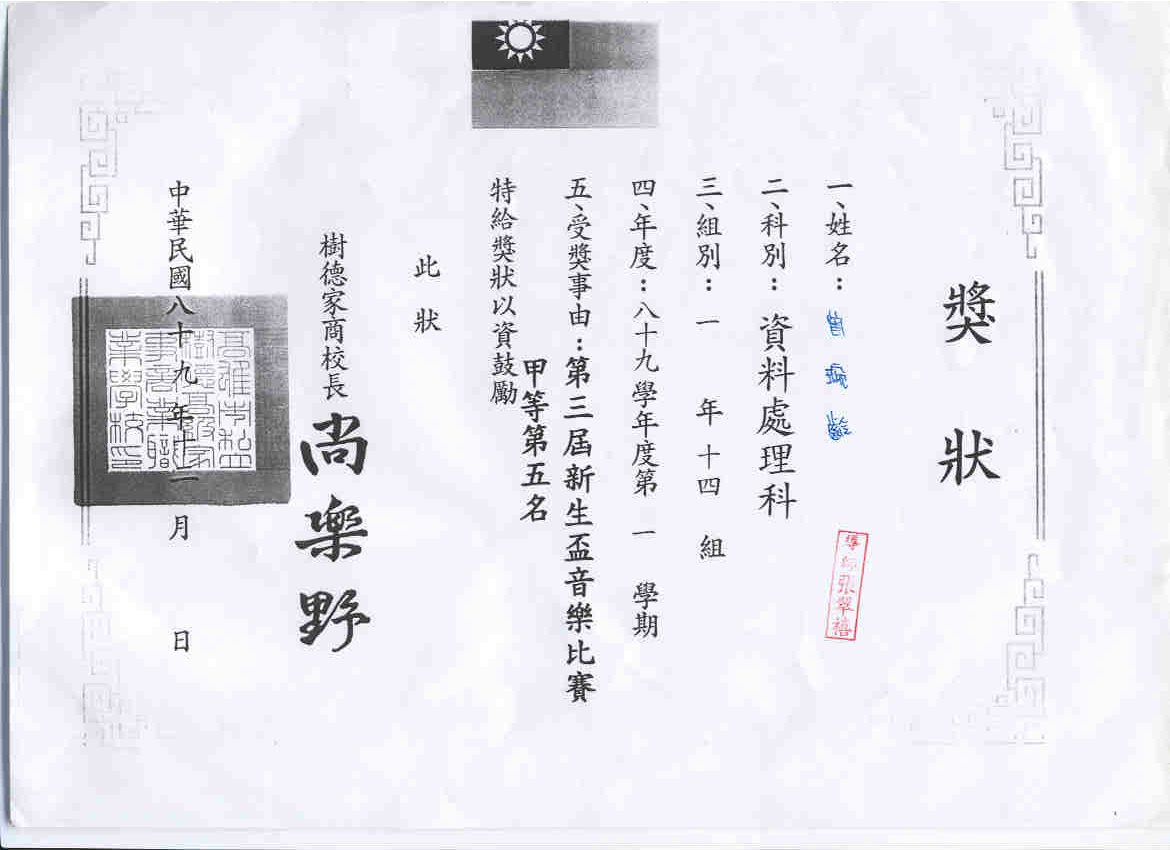 獎狀
一、姓名：曾琬齡
導師張翠禧
二、科別：資料處理科
三、組別：一 年 十四 組
四、年度：八十九學年度第 一 學期
五、受獎事由：第三屆新生盃音樂比賽
甲等第五名
特給獎狀以資鼓勵
此 狀
樹德家商校長 尚樂野
中華民國八十九年十一月 日
高雄市私
樹德高級家
事商業職
業學校印